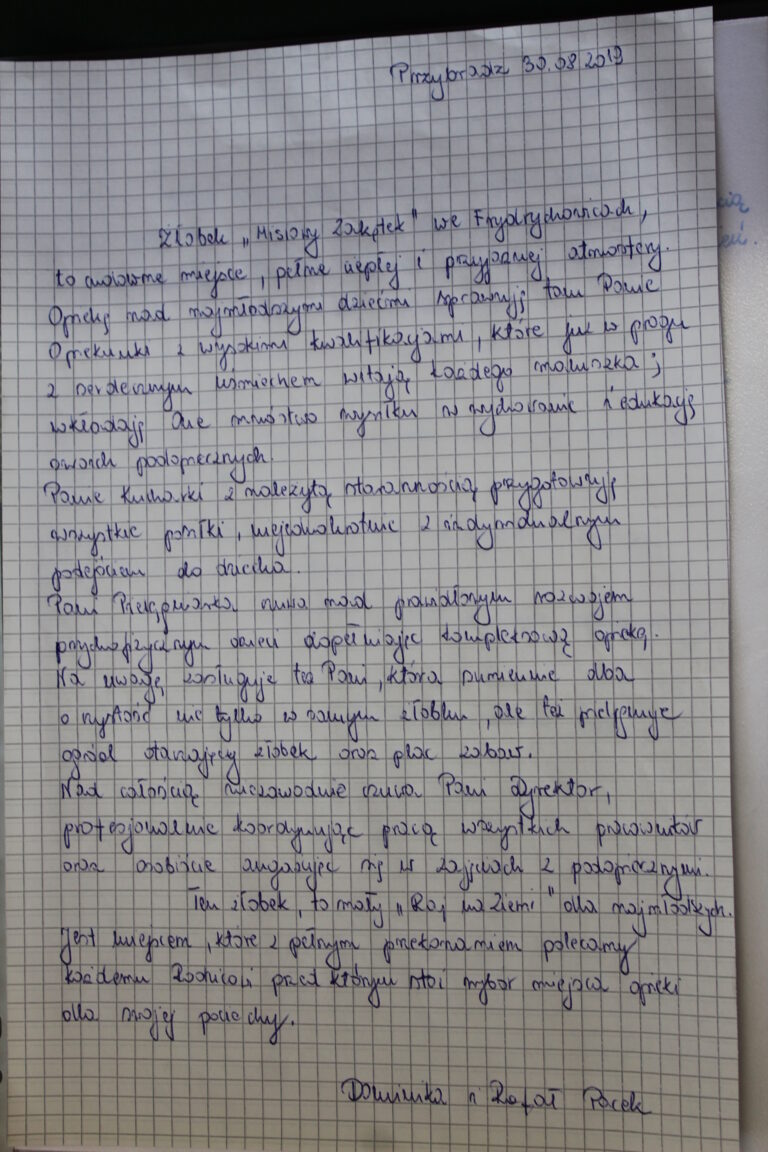 Przybradz 30.08.2019
Żłobek „Misiowy Zakątek" we Frydrychowicach,
to cudowne miejsce, pełne ciepłej i przyjaznej atmosfery.
Opiekę nad najmłodszymi dziećmi sprawują tam Panie
Opiekunki z wysokimi kwalifikacjami, które już w progu
z serdecznym uśmiechem witają każdego maluszka;
wkładają One mnóstwo wysiłku w wychowanie i edukację
swoich podopiecznych.
Panie Kucharki z należytą starannością przygotowują
wszystkie posiłki, niejednokrotnie z indywidualnym
podejściem do dziecka.
Pani Pielęgniarka czuwa nad prawidłowym rozwojem
psychofizycznym dzieci dopełniając kompleksową opiekę.
Na uwagę zasługuje też Pani, która sumiennie dba
o czystość nie tylko w samym żłobku, ale też pielęgnuje
ogród otaczający żłobek oraz plac zabaw.
Nad całością niezawodnie czuwa Pani Dyrektor,
profesjonalnie koordynując pracę wszystkich pracowników
oraz osobiście angażując się w zajęciach z podopiecznymi.
Ten żłobek, to mały „Raj na Ziemi" dla najmłodszych.
Jest miejscem, które z pełnym przekonaniem polecamy
każdemu Rodzicowi przed którym stoi wybór miejsca opieki
dla swojej pociechy.
Dominika i Rafał Pacek